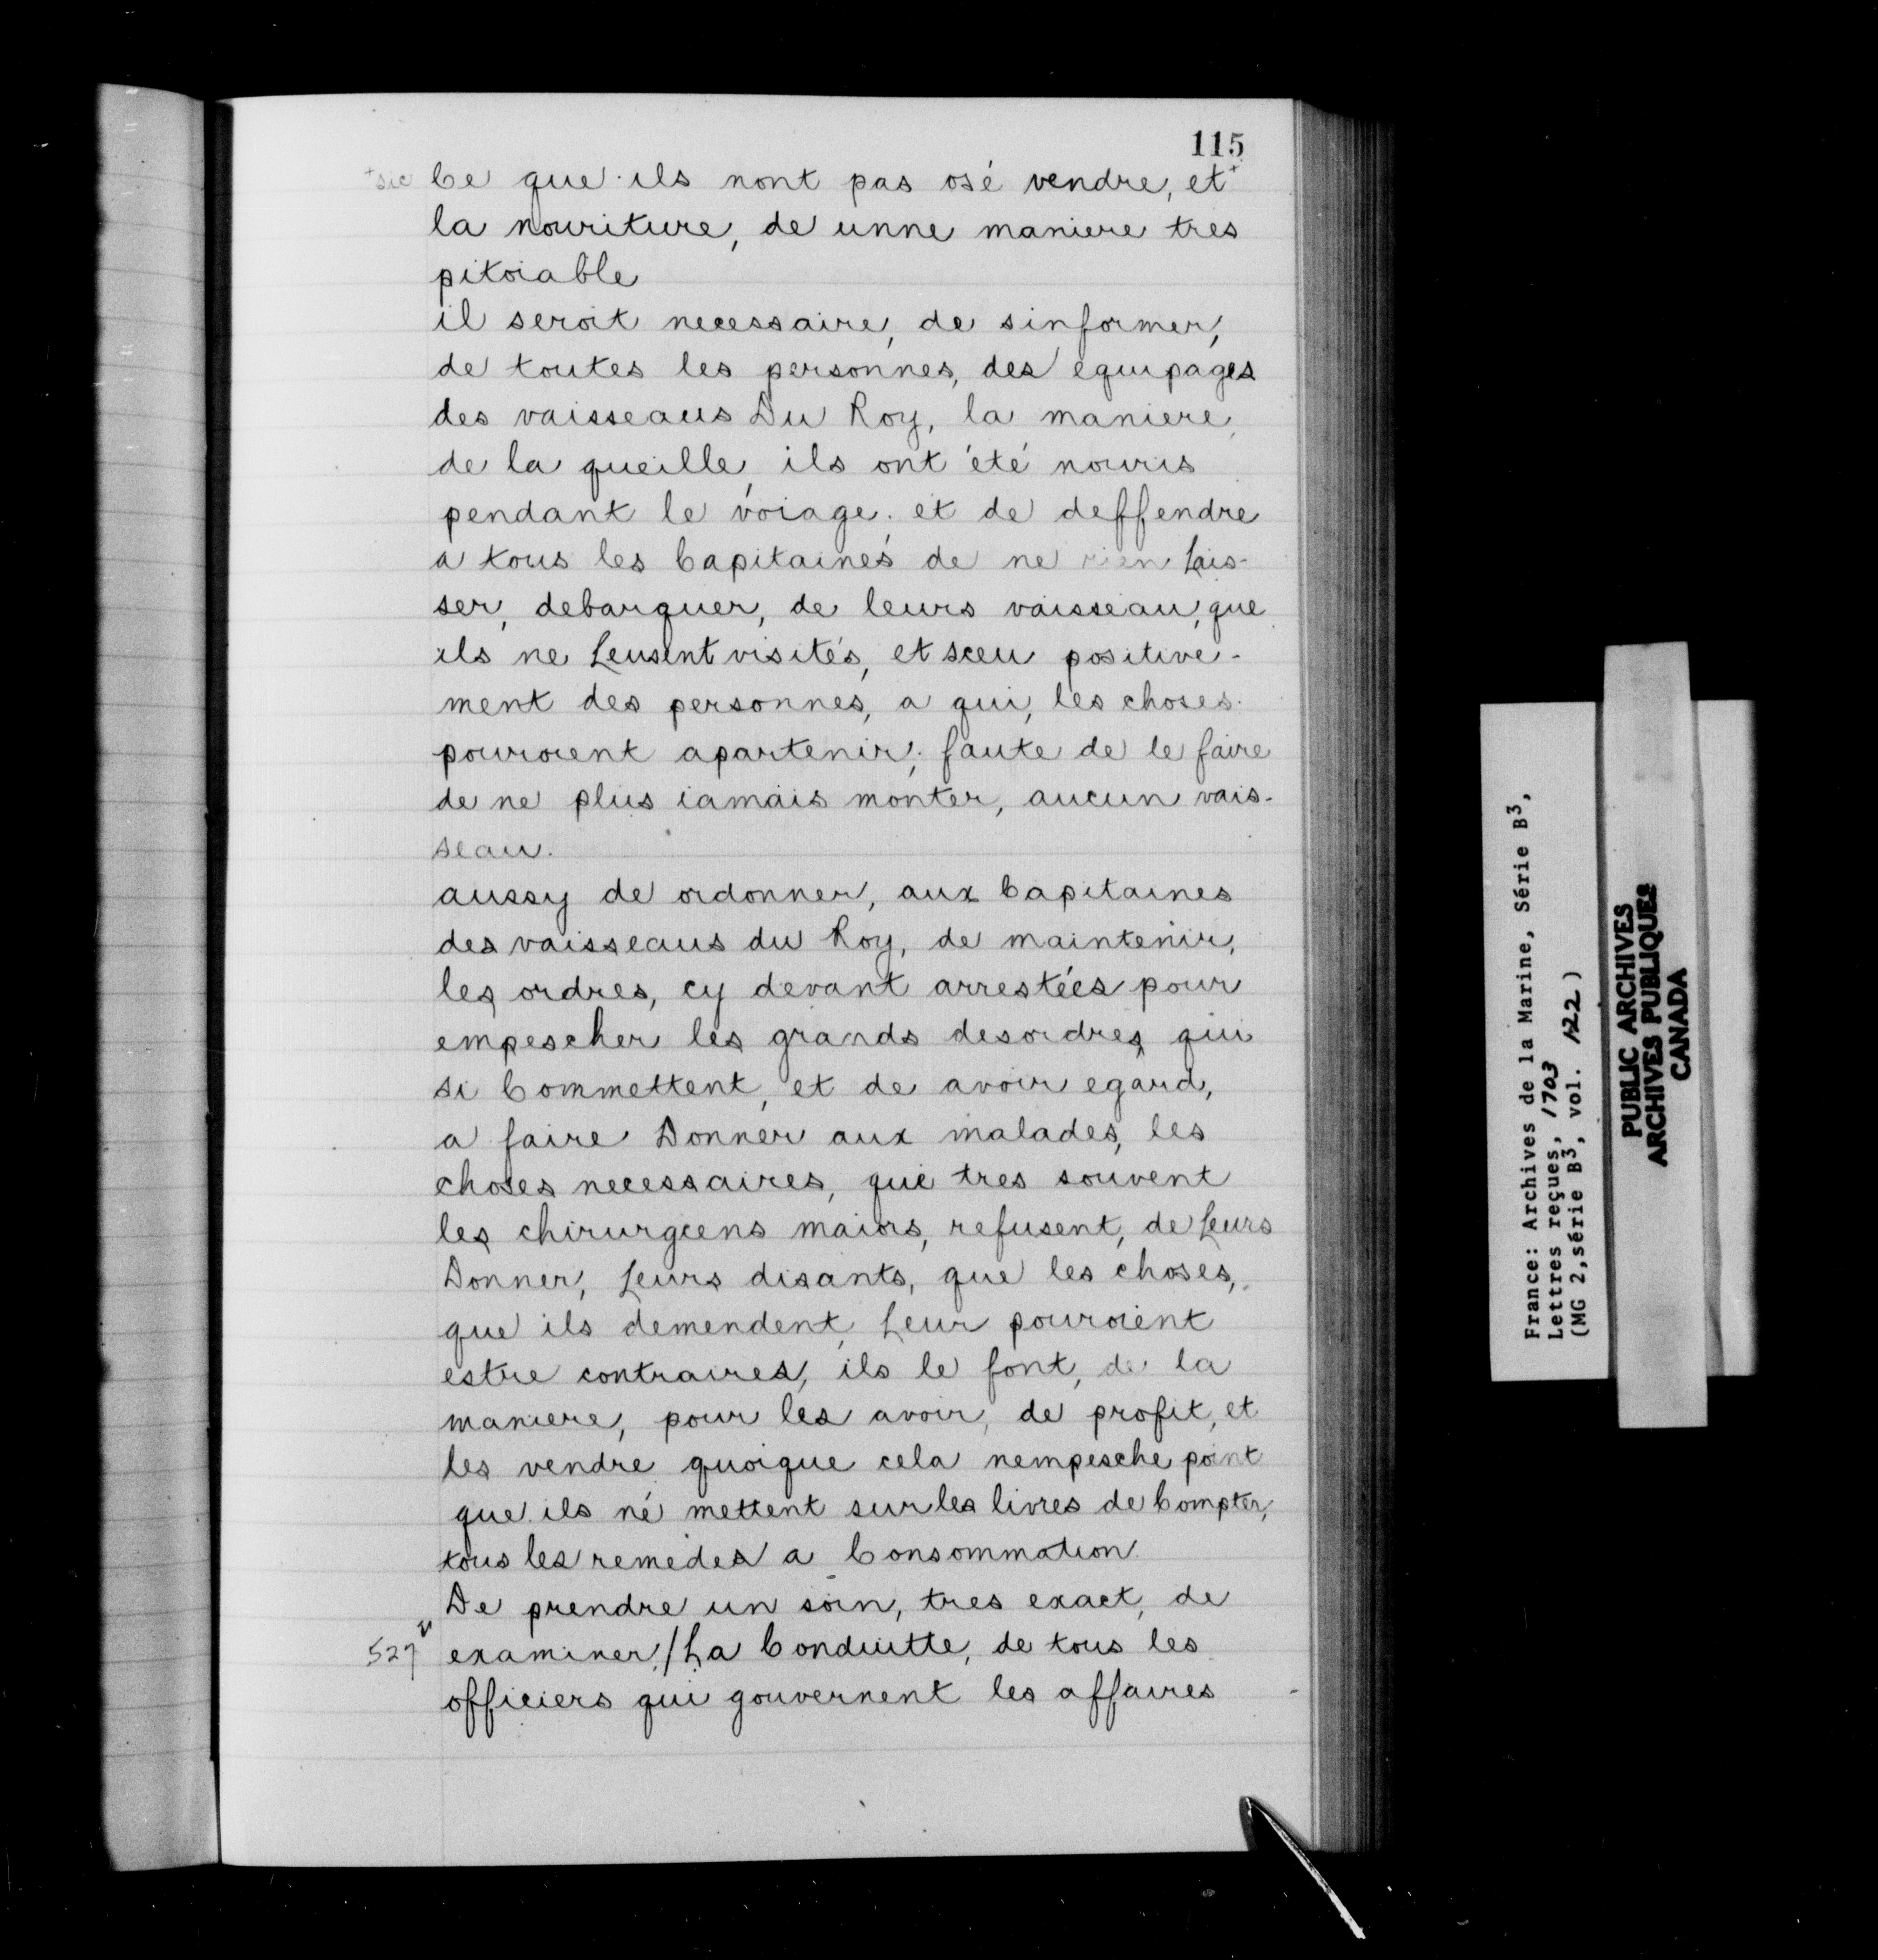 115
+sic Ce que ils nont pas osé vendre, et+
la nouriture, de unne maniere tres
pitoiable
il seroit necessaire, de sinformer,
de toutes les personnes, des equipages
des vaisseaus Du Roy, la maniere,
de la queille, ils ont été nouris
pendant le voiage. et de deffendre
a tous les Capitaines de ne rien Lais-
ser, debarquer, de leurs vaisseau, que
ils ne Leusent visités, et sceu positive-
ment des personnes, a qui, les choses.
pouroient apartenir; faute de le faire
de ne plus iamais monter, aucun vais-
seau.
aussy de ordonner, aux Capitaines
des vaisseaus du Roy, de maintenir,
les ordres, cy devant arrestées pour
empescher les grands desordres, qui
si Commettent, et de avoir egard,
a faire Donner aux malades, les
choses necessaires, que tres souvent
les chirurgiens maiors, refusent, de Leurs
Donner, Leurs disants, que les choses,
que ils demendent, Leur pouroient
estre contraires, ils le font, de la
maniere, pour les avoir, de profit, et
les vendre quoique cela nempesche point
que ils né mettent sur les livres de Compter,
tous les remedes a Consommation.
De prendre un soin, tres exact, de
527v examiner,/La Conduitte, de tous les
officiers qui gouvernent les affaires
France: Archives de la Marine, Série B3,
Lettres reçues, 1703
(MG 2, série B3, vol. 122)
PUBLIC ARCHIVES
ARCHIVES PUBLIQUES
CANADA